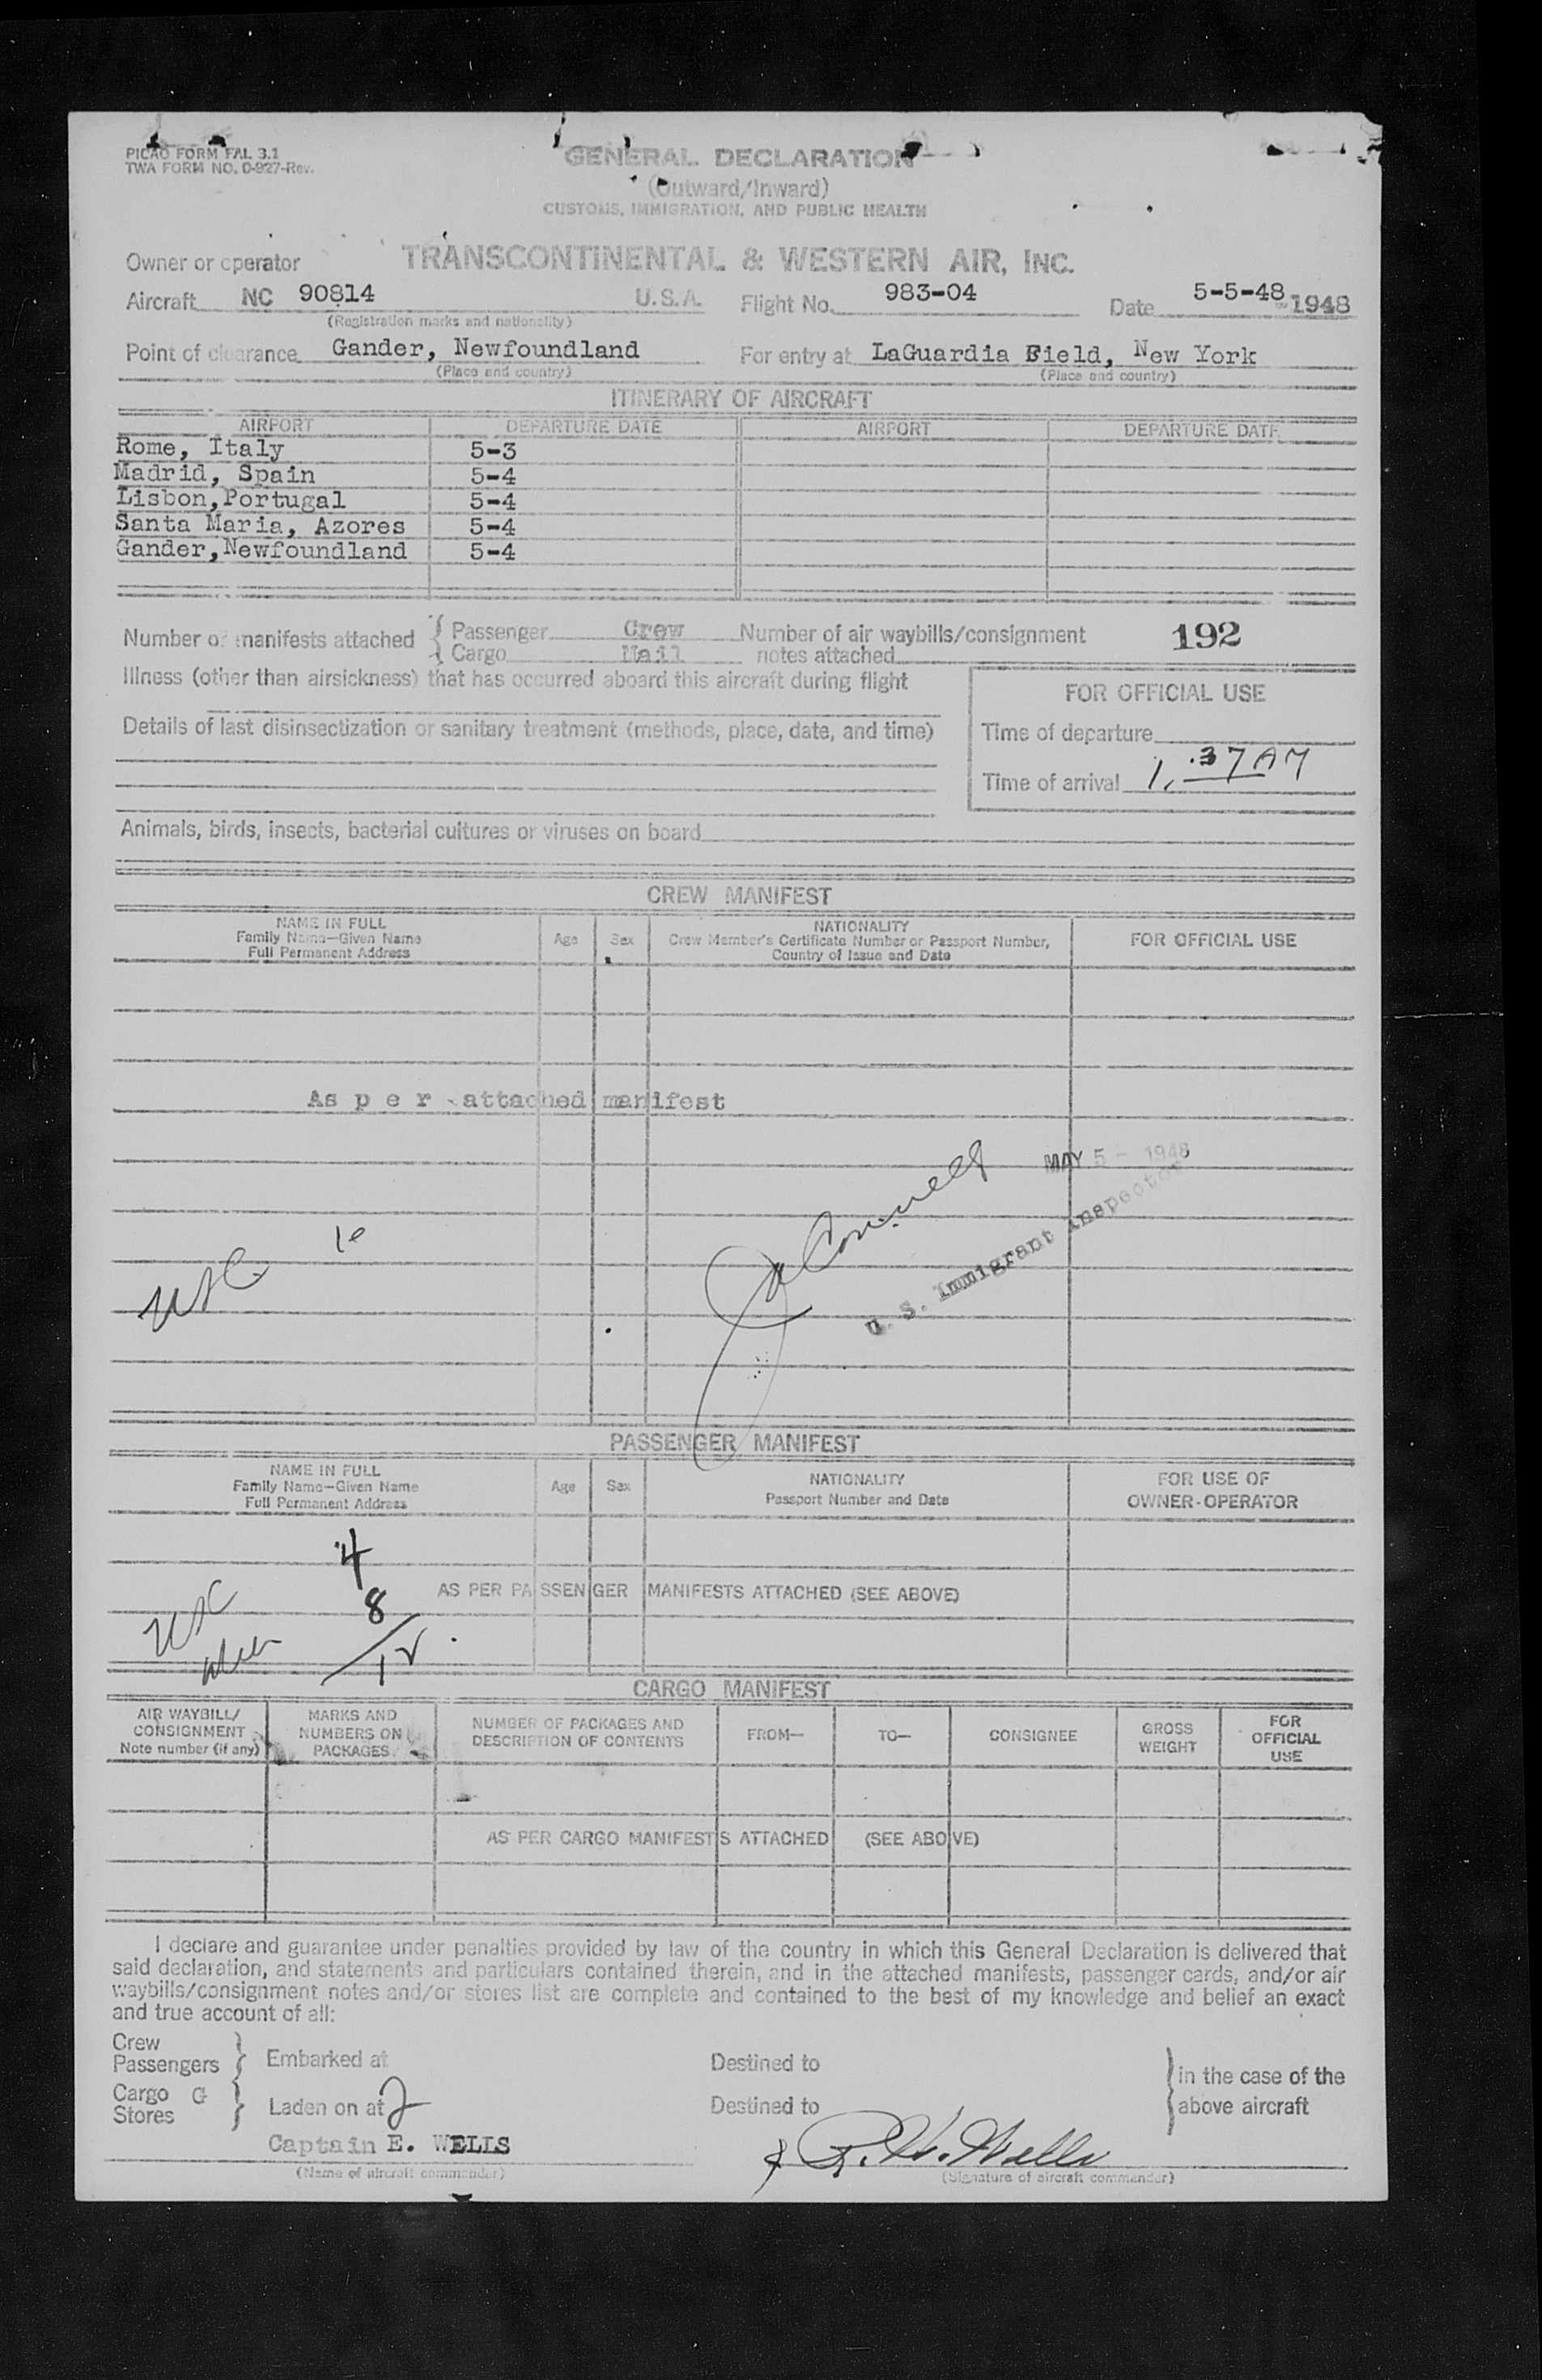 PICAO FORM FAL 3.1
TWA FORM NO. O-927-Rev.
GENERAL DECLARATION
(Outward/Inward)
CUSTOMS, IMMIGRATION, AND PUBLIC HEALTH
Owner or operator TRANSCONTINENTAL & WESTERN AIR, INC.
Aircraft NC 90814 U.S.A. Flight No. 983-04 Date 5-5-48 1948
(Registration marks and nationality)
Point of clearance Gander, Newfoundland For entry at LaGuardia Field, New York
(Place and country) (Place and country)
ITINERARY OF AIRCRAFT
AIRPORT DEPARTURE DATE AIRPORT DEPARTURE DATE
Rome, Italy 5-3
Madrid, Spain 5-4
Lisbon, Portugal 5-4
Santa Maria, Azores 5-4
Gander, Newfoundland 5-4
Number of manifests attached { Passenger Crew Number of air waybills/consignment 192
{ Cargo Mail notes attached
Illness (other than airsickness) that has occurred aboard this aircraft during flight
FOR OFFICIAL USE
Details of last disinsectization or sanitary treatment (methods, place, date, and time)
Time of departure
Time of arrival 1.37 AM
Animals, birds, insects, bacterial cultures or viruses on board
CREW MANIFEST
NAME IN FULL
Family Name—Given Name
Full Permanent Address
Age Sex
NATIONALITY
Crew Member's Certificate Number or Passport Number,
Country of Issue and Date
FOR OFFICIAL USE
As p e r attached manifest
MAY 5 - 1948
U. S. Immigrant Inspector
USC 10
PASSENGER MANIFEST
NAME IN FULL
Family Name—Given Name
Full Permanent Address
Age Sex
NATIONALITY
Passport Number and Date
FOR USE OF
OWNER-OPERATOR
4
USC 8
AS PER PASSENGER MANIFESTS ATTACHED (SEE ABOVE)
12
CARGO MANIFEST
AIR WAYBILL/
CONSIGNMENT
Note number (if any)
MARKS AND
NUMBERS ON
PACKAGES
NUMBER OF PACKAGES AND
DESCRIPTION OF CONTENTS
FROM— TO— CONSIGNEE
GROSS
WEIGHT
FOR
OFFICIAL
USE
AS PER CARGO MANIFESTS ATTACHED (SEE ABOVE)
I declare and guarantee under penalties provided by law of the country in which this General Declaration is delivered that
said declaration, and statements and particulars contained therein, and in the attached manifests, passenger cards, and/or air
waybills/consignment notes and/or stores list are complete and contained to the best of my knowledge and belief an exact
and true account of all:
Crew
Passengers } Embarked at Destined to } in the case of the
Cargo G
Stores } Laden on at 2 Destined to } above aircraft
Captain E. WELLS R. H. Wells
(Name of aircraft commander) (Signature of aircraft commander)